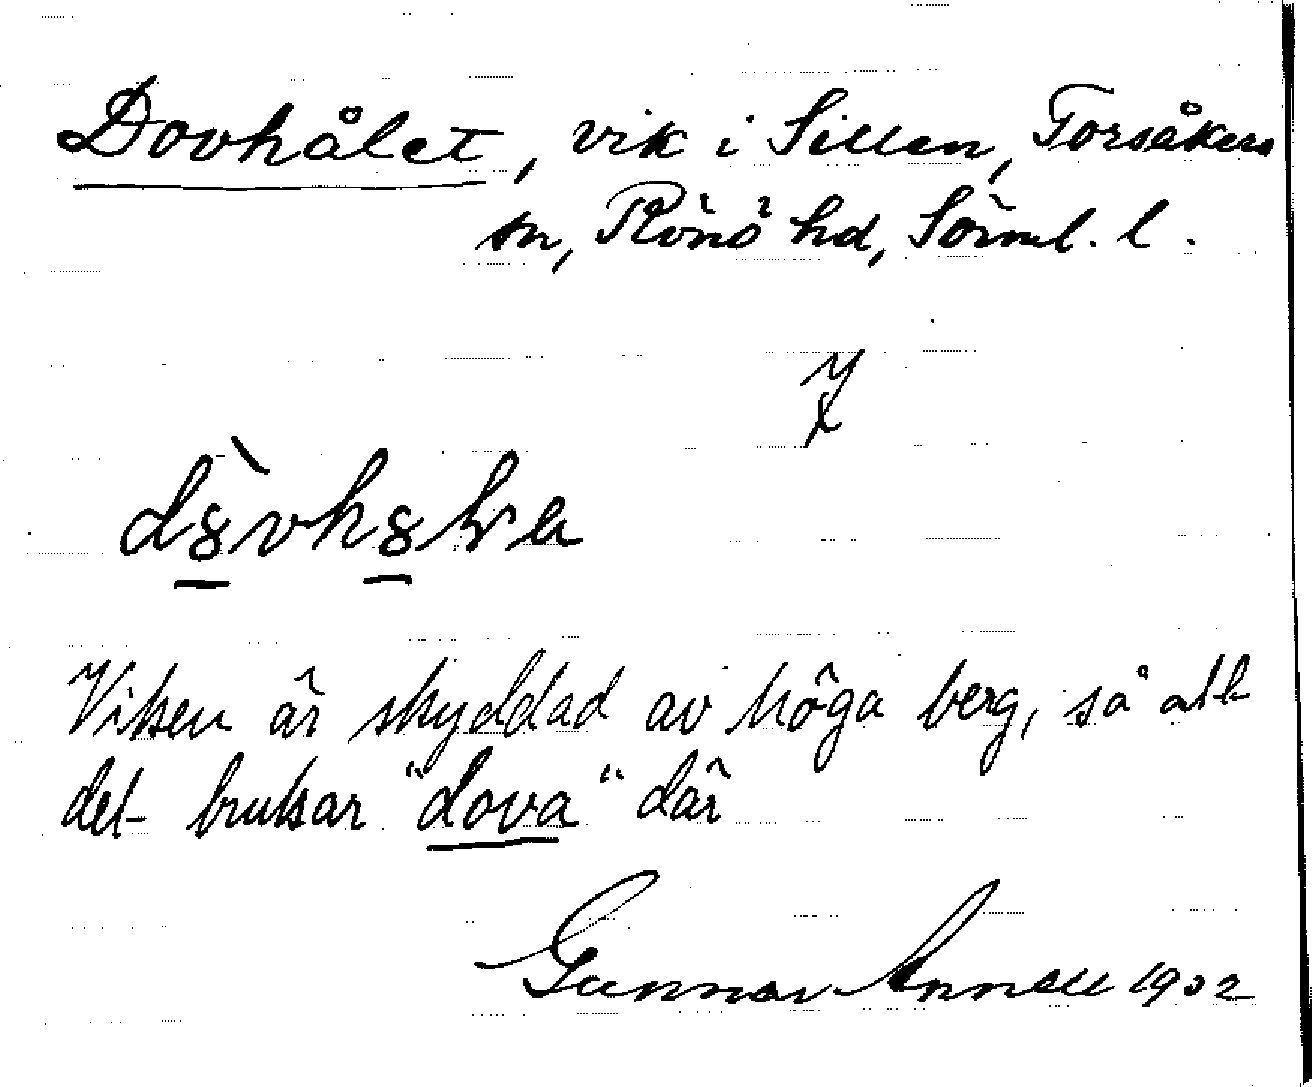 Dovhålet, vik i Sillen, Torsåkers
sn, Rönö hd, Sörml. l.
Viken är skyddad av höga berg, så att
det brukar "dova" där
Gunnar Annell 1932